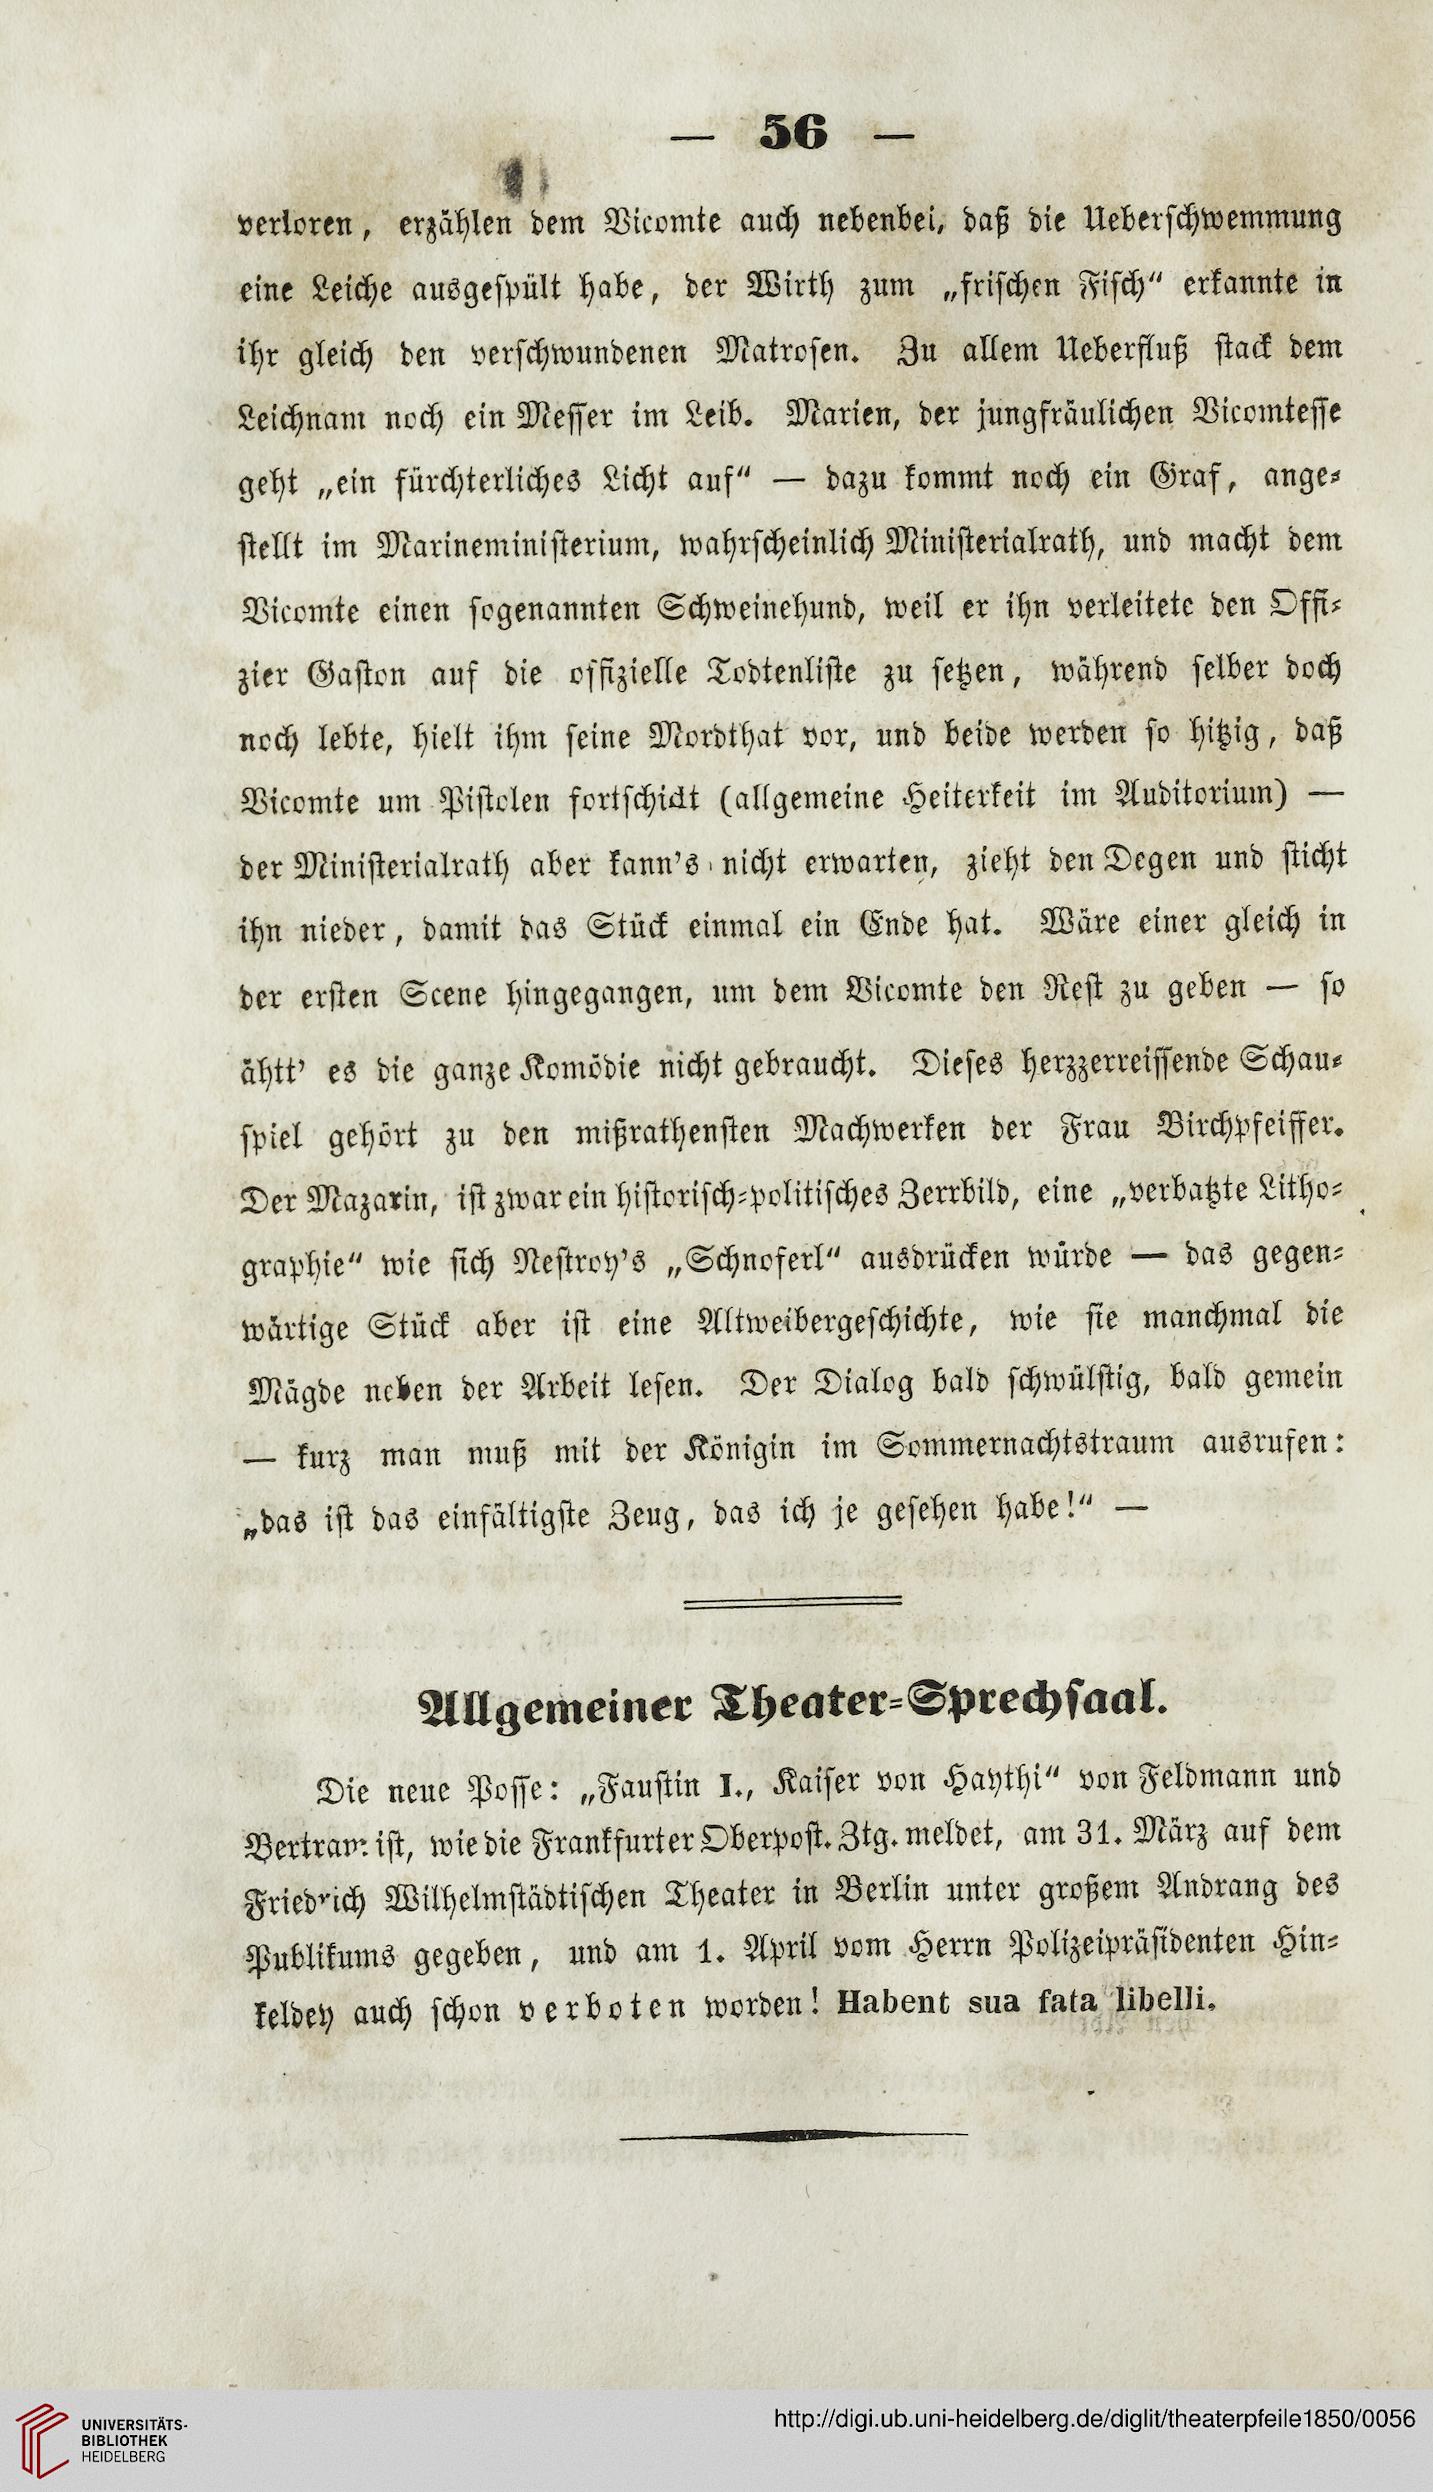 — 56 —
verloren, erzählen dem Vicomte auch nebenbei, daß die Ueberschwemmung
eine Leiche ausgespült habe, der Wirth zum „frischen Fisch“ erkannte in
ihr gleich den verschwundenen Matrosen. Zu allem Ueberfluß stack dem
Leichnam noch ein Messer im Leib. Marien, der jungfräulichen Vicomtesse
geht „ein fürchterliches Licht auf“ — dazu kommt noch ein Graf, ange-
stellt im Marineministerium, wahrscheinlich Ministerialrath, und macht dem
Vicomte einen sogenannten Schweinehund, weil er ihn verleitete den Offi-
zier Gaston auf die offizielle Todtenliste zu setzen, während selber doch
noch lebte, hielt ihm seine Mordthat vor, und beide werden so hitzig, daß
Vicomte um Pistolen fortschickt (allgemeine Heiterkeit im Auditorium) —
der Ministerialrath aber kann's nicht erwarten, zieht den Degen und sticht
ihn nieder, damit das Stück einmal ein Ende hat. Wäre einer gleich in
der ersten Scene hingegangen, um dem Vicomte den Rest zu geben — so
ähtt' es die ganze Komödie nicht gebraucht. Dieses herzzerreissende Schau-
spiel gehört zu den mißrathensten Machwerken der Frau Birchpfeiffer.
Der Mazarin, ist zwar ein historisch-politisches Zerrbild, eine „verbatzte Litho-
graphie“ wie sich Nestroy's „Schnoferl“ ausdrücken würde — das gegen-
wärtige Stück aber ist eine Altweibergeschichte, wie sie manchmal die
Mägde neben der Arbeit lesen. Der Dialog bald schwülstig, bald gemein
— kurz man muß mit der Königin im Sommernachtstraum ausrufen:
„das ist das einfältigste Zeug, das ich je gesehen habe!“ —
Allgemeiner Theater-Sprechsaal.
Die neue Posse: „Faustin I., Kaiser von Haythi“ von Feldmann und
Bertram ist, wie die Frankfurter Oberpost. Ztg. meldet, am 31. März auf dem
Friedrich Wilhelmstädtischen Theater in Berlin unter großem Andrang des
Publikums gegeben, und am 1. April vom Herrn Polizeipräsidenten Hin-
keldey auch schon verboten worden! Habent sua fata libelli.
UNIVERSITÄTS-
BIBLIOTHEK
HEIDELBERG
http://digi.ub.uni-heidelberg.de/diglit/theaterpfeile1850/0056